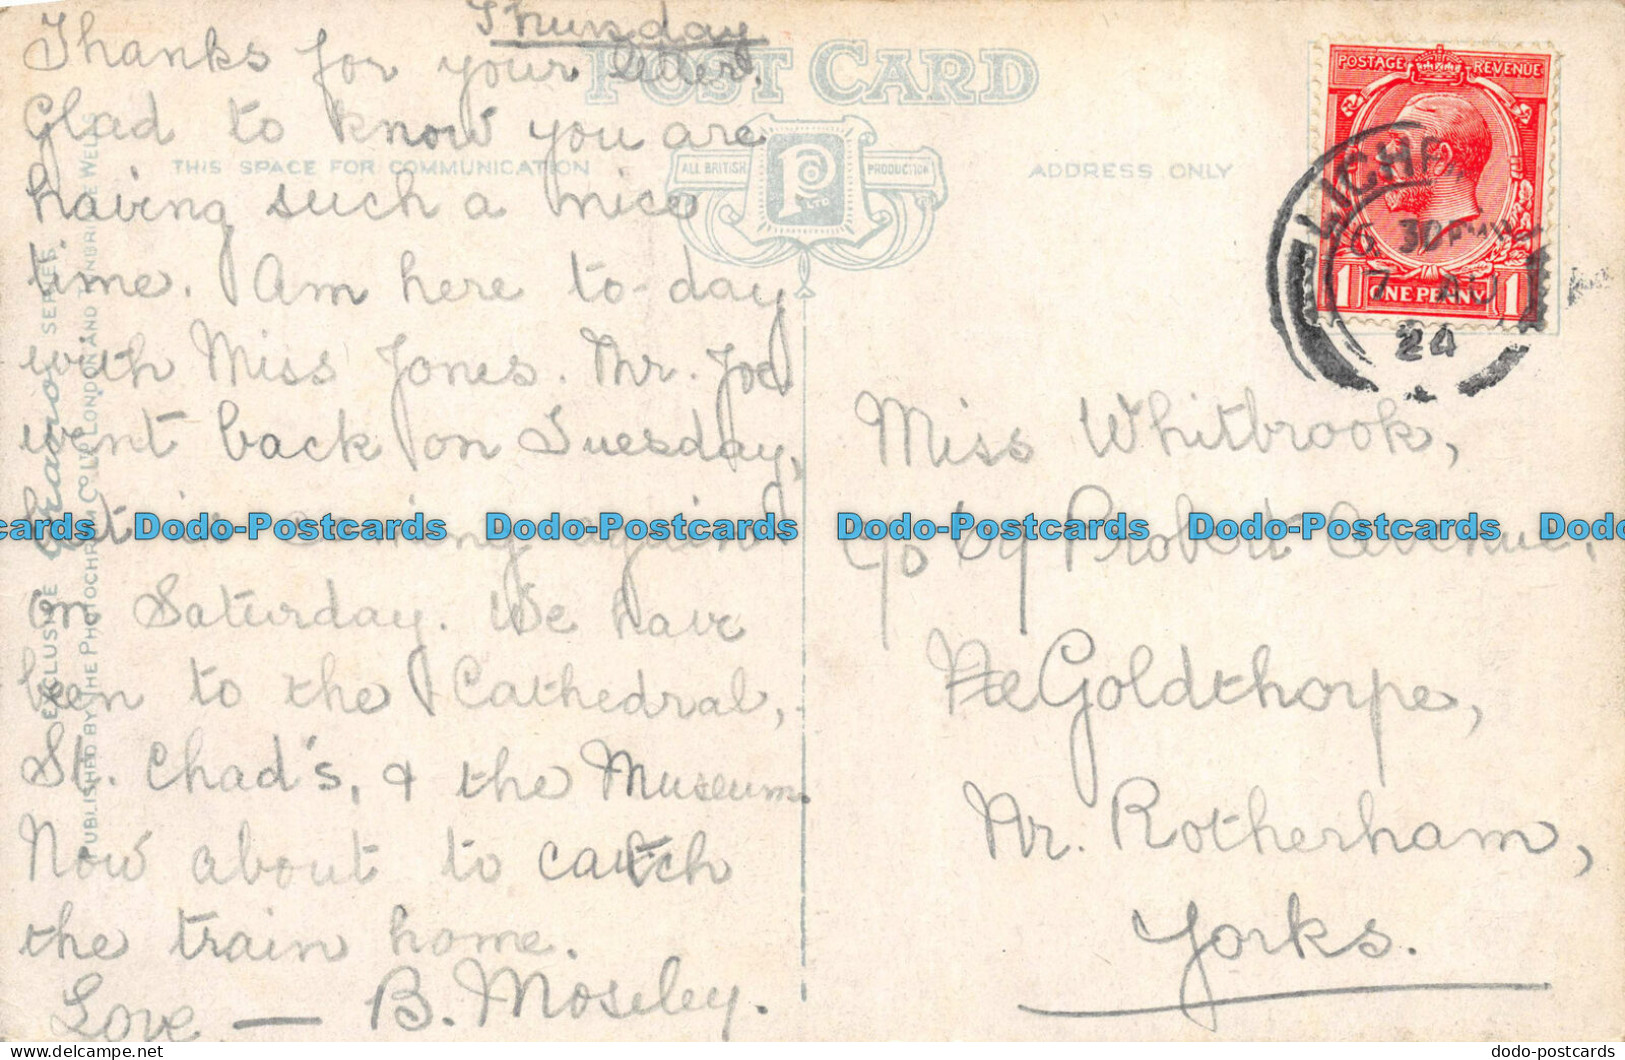 Thursday
Thanks for your letter.
Glad to know you are
having such a nice
time. Am here to-day
with Miss Jones. Mr. Joe
went back on Tuesday,
but is coming again
on Saturday. We have
been to the Cathedral,
St. Chad's, & the Museum.
Now about to catch
the train home.
Love — B. Moseley.
POST CARD
THIS SPACE FOR COMMUNICATION
ALL BRITISH PRODUCTION
ADDRESS ONLY
EXCLUSIVE SERIES
PUBLISHED BY THE PHOTOCHROM CO LTD LONDON AND TUNBRIDGE WELLS
POSTAGE REVENUE
1 ONE PENNY 1
30
7 AU
24
Miss Whitbrook,
c/o 69 Probert Avenue,
Goldthorpe,
Nr. Rotherham,
Yorks.
Dodo-Postcards Dodo-Postcards Dodo-Postcards Dodo-Postcards
dodo-postcards